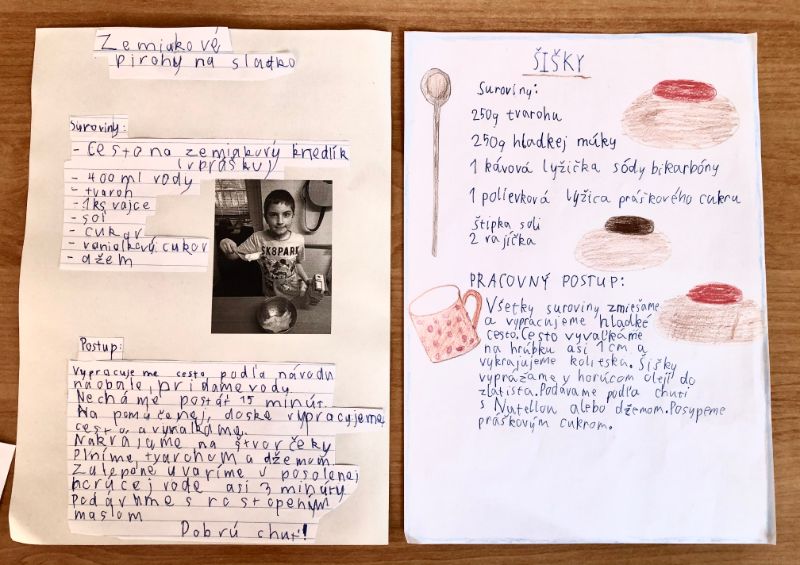 Zemiakové
pirohy na sladko
Suroviny:
- Cesto na zemiakový knedlík
(v prášku)
- 400 ml vody
- tvaroh
- 1ks vajce
- soľ
- cukor
- vanilkový cukor
- džem
SK8PARK
Postup:
Vypracujeme cesto podľa návodu
na obale, pridáme vody.
Necháme postáť 15 minút.
Na pomúčenej doske vypracujeme
cesto a vyvalkáme.
Nakrájame na štvorčeky
Plníme tvarohom a džemom.
Zalepené uvaríme v posolenej
horúcej vode asi 3 minúty
Podávame s rostopeným
maslom
Dobrú chuť!
ŠIŠKY
Suroviny:
250g tvarohu
250g hladkej múky
1 kávová lyžička sódy bikarbóny
1 polievková lyžica práškového cukru
štipka soli
2 vajíčka
PRACOVNÝ POSTUP:
Všetky suroviny zmiešame
a vypracujeme hladké
cesto. Cesto vyvaľkáme
na hrúbku asi 1 cm a
vykrajujeme kolieska. Šišky
vyprážame v horúcom oleji do
zlatista. Podávame podľa chuti
s Nutellou alebo džemom. Posypeme
práškovým cukrom.